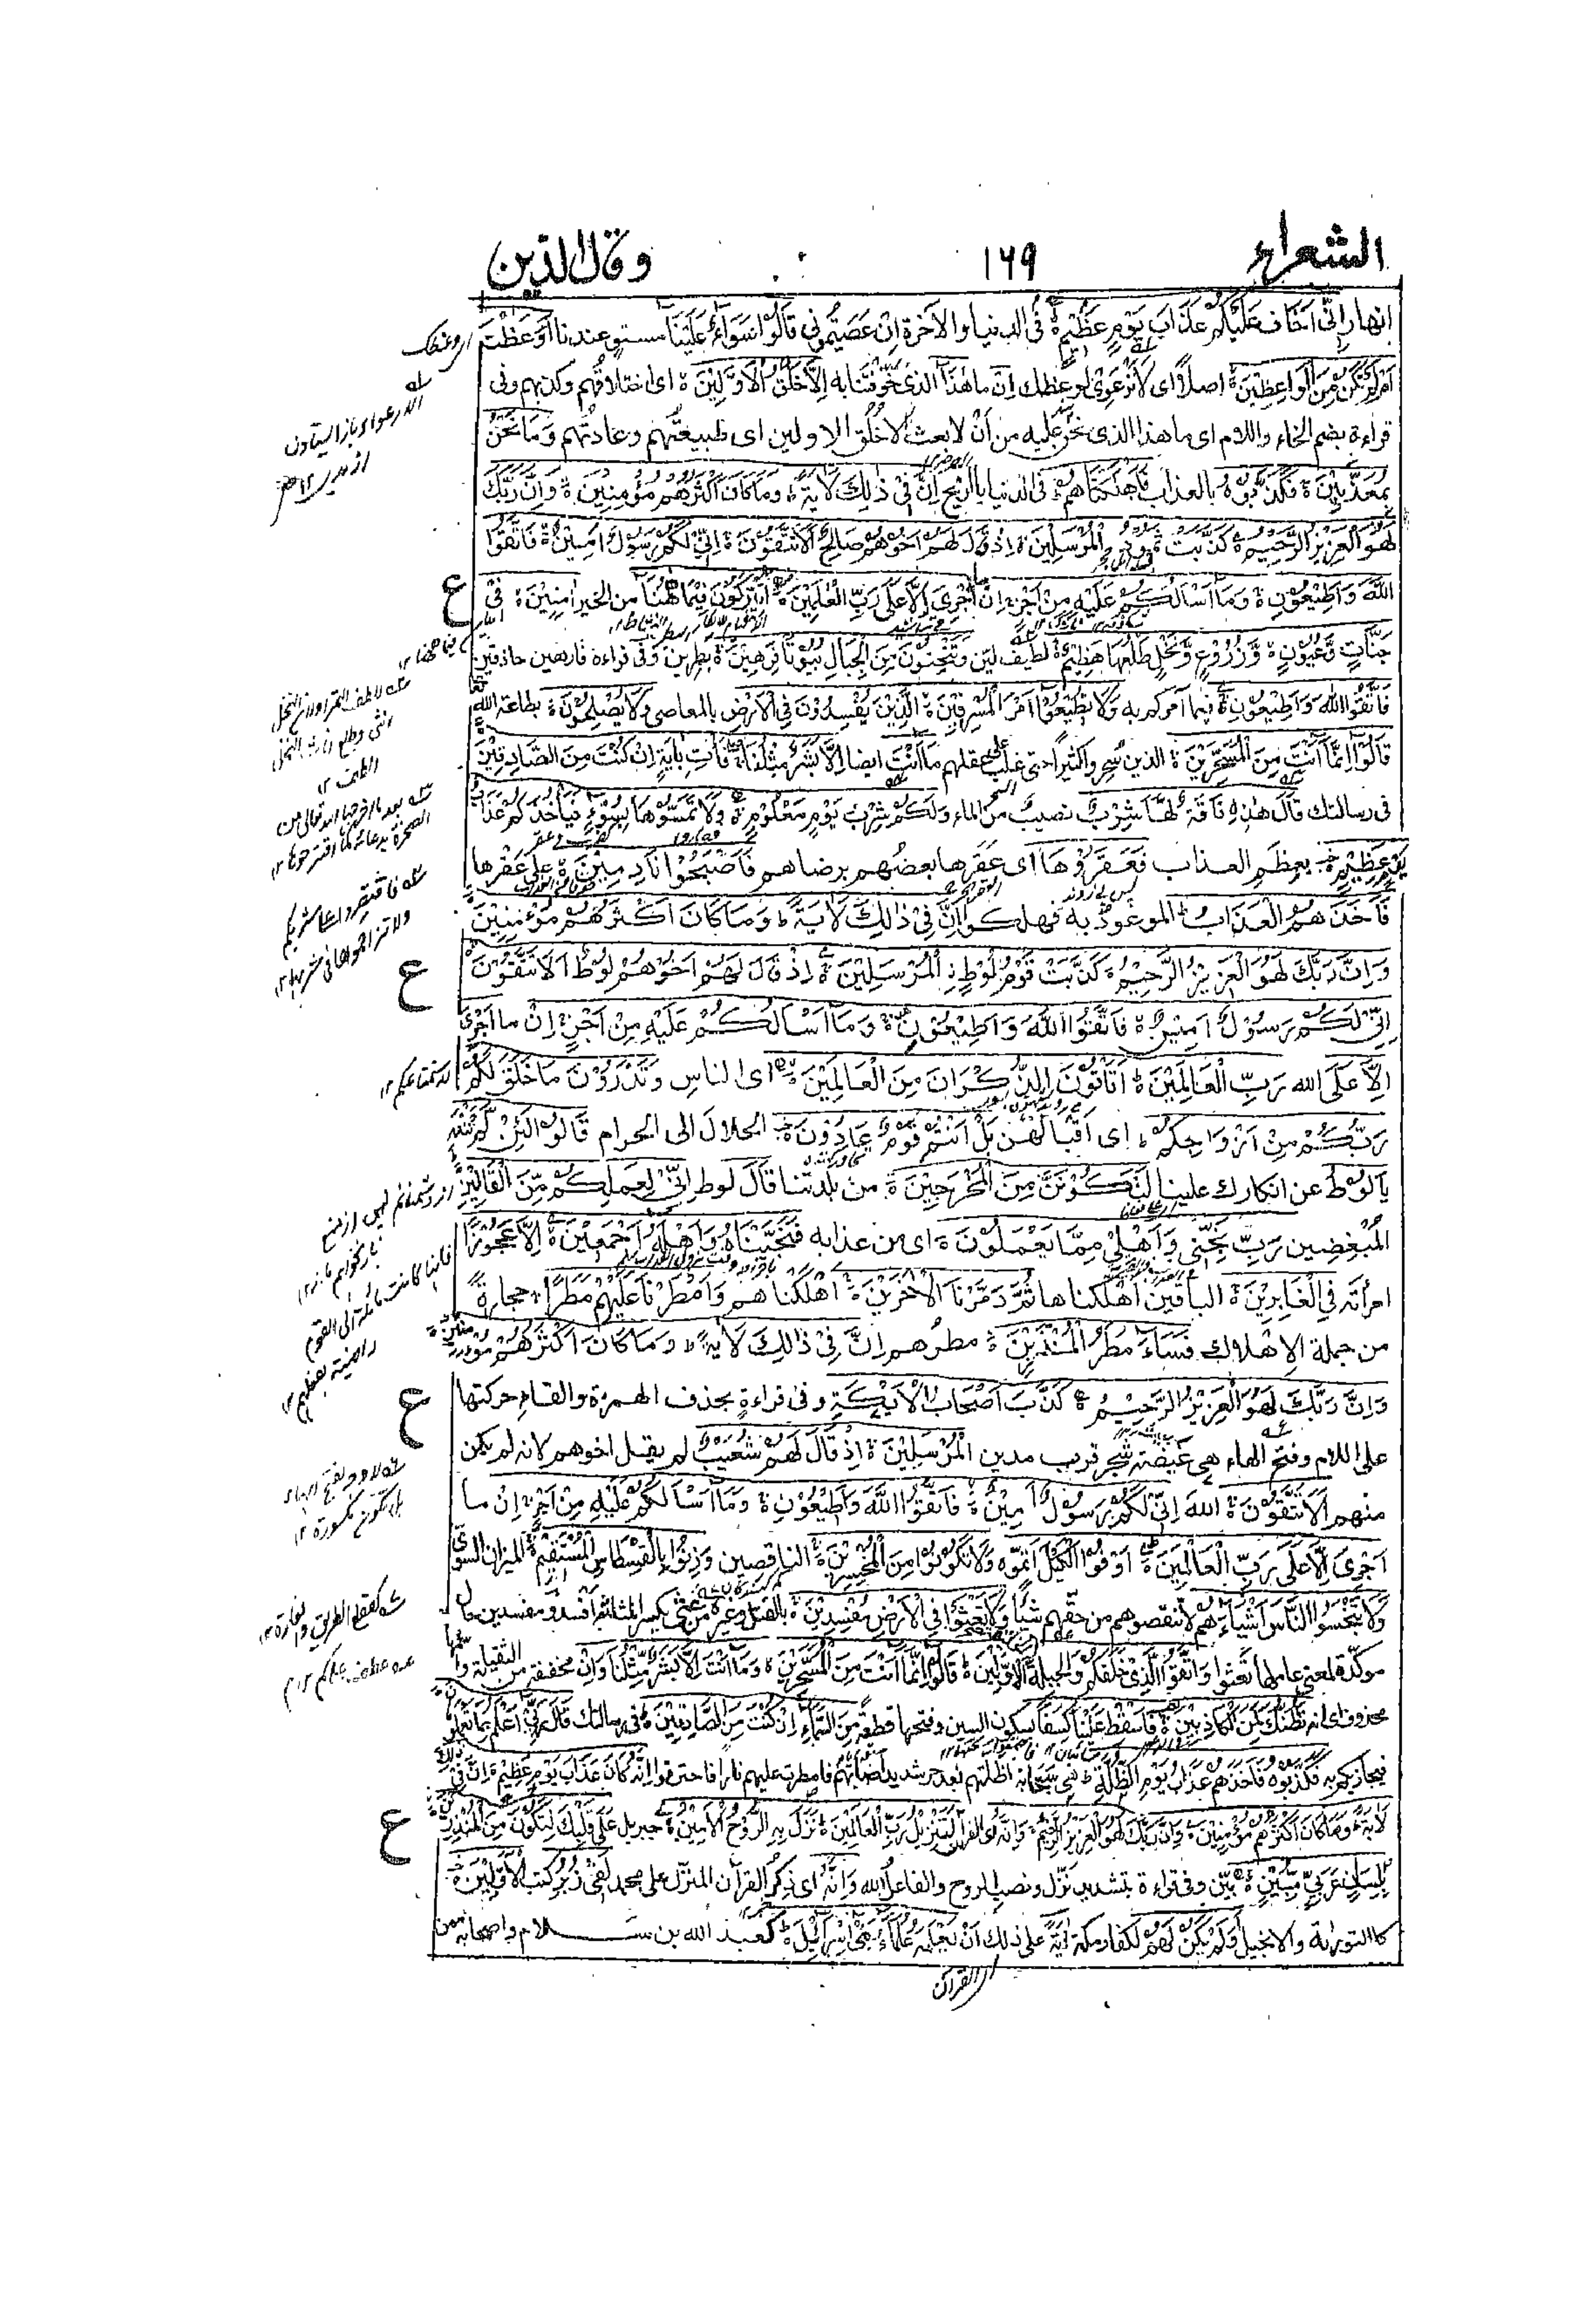 الشعراء
١٦٩
وقال الذین
انهار اِنِّیْ اَخَافُ عَلَیْكُمْ عَذَابَ یَوْمٍ عَظِیْمٍ فی الدنیا والاخرة ان عصیتمونی قَالُوْا سَوَآءٌ عَلَیْنَا مستوٍ عندنا اَوَعَظْتَ
اَمْ لَمْ تَكُنْ مِّنَ الْوَاعِظِیْنَ اصلاً ای لا نرعوی لوعظك اِنْ ما هٰذَا الذی خوفتنا به اِلَّا خَلْقُ الْاَوَّلِیْنَ ای اختلاقهم وكذبهم وفی
قراءة بضم الخاء واللام ای ما هذا الذی نحن علیه من اَنْ لا بعث الا خُلُق الاولین ای طبیعتهم وعادتهم وَمَا نَحْنُ
بِمُعَذَّبِیْنَ فَكَذَّبُوْهُ بالعذاب فَاَهْلَكْنَاهُمْ فی الدنیا بالریح اِنَّ فِیْ ذٰلِكَ لَاٰیَةً وَمَا كَانَ اَكْثَرُهُمْ مُؤْمِنِیْنَ وَاِنَّ رَبَّكَ
لَهُوَ الْعَزِیْزُ الرَّحِیْمُ كَذَّبَتْ ثَمُوْدُ الْمُرْسَلِیْنَ اِذْ قَالَ لَهُمْ اَخُوْهُمْ صَالِحٌ اَلَا تَتَّقُوْنَ اِنِّیْ لَكُمْ رَسُوْلٌ اَمِیْنٌ فَاتَّقُوا
اللّٰهَ وَاَطِیْعُوْنِ وَمَا اَسْاَلُكُمْ عَلَیْهِ مِنْ اَجْرٍ اِنْ اَجْرِیَ اِلَّا عَلٰی رَبِّ الْعٰلَمِیْنَ اَتُتْرَكُوْنَ فِیْمَا هٰهُنَا من الخیر اٰمِنِیْنَ فِیْ
جَنّٰتٍ وَّعُیُوْنٍ وَّزُرُوْعٍ وَّنَخْلٍ طَلْعُهَا هَضِیْمٌ لطیف لین وَتَنْحِتُوْنَ مِنَ الْجِبَالِ بُیُوْتًا فَرِهِیْنَ بطرین وفی قراءة فارهین حاذقین
فَاتَّقُوا اللّٰهَ وَاَطِیْعُوْنِ فیما امركم به وَلَا تُطِیْعُوْا اَمْرَ الْمُسْرِفِیْنَ الَّذِیْنَ یُفْسِدُوْنَ فِی الْاَرْضِ بالمعاصی وَلَا یُصْلِحُوْنَ بطاعة الله
قَالُوْا اِنَّمَا اَنْتَ مِنَ الْمُسَحَّرِیْنَ الذین سُحِروا كثیرا حتی غلب علی عقلهم مَا اَنْتَ ایضا اِلَّا بَشَرٌ مِّثْلُنَا فَاْتِ بِاٰیَةٍ اِنْ كُنْتَ مِنَ الصَّادِقِیْنَ
فی رسالتك قَالَ هٰذِهٖ نَاقَةٌ لَهَا شِرْبٌ نصیب من الماء وَلَكُمْ شِرْبُ یَوْمٍ مَّعْلُوْمٍ وَلَا تَمَسُّوْهَا بِسُوْءٍ فَیَاْخُذَكُمْ عَذَابُ
یَوْمٍ عَظِیْمٍ بعِظَمِ العذاب فَعَقَرُوْهَا ای عَقَرها بعضُهم برضاهم فَاَصْبَحُوْا نَادِمِیْنَ علی عَقْرها
فَاَخَذَهُمُ الْعَذَابُ الموعود به فهلكوا اِنَّ فِیْ ذٰلِكَ لَاٰیَةً وَمَا كَانَ اَكْثَرُهُمْ مُؤْمِنِیْنَ
وَاِنَّ رَبَّكَ لَهُوَ الْعَزِیْزُ الرَّحِیْمُ كَذَّبَتْ قَوْمُ لُوْطِ ِۨالْمُرْسَلِیْنَ اِذْ قَالَ لَهُمْ اَخُوْهُمْ لُوْطٌ اَلَا تَتَّقُوْنَ
اِنِّیْ لَكُمْ رَسُوْلٌ اَمِیْنٌ فَاتَّقُوا اللّٰهَ وَاَطِیْعُوْنِ وَمَا اَسْاَلُكُمْ عَلَیْهِ مِنْ اَجْرٍ اِنْ ما اَجْرِیَ
اِلَّا عَلٰی الله رَبِّ الْعَالَمِیْنَ اَتَاْتُوْنَ الذُّكْرَانَ مِنَ الْعَالَمِیْنَ ای الناس وَتَذَرُوْنَ مَا خَلَقَ لَكُمْ
رَبُّكُمْ مِنْ اَزْوَاجِكُمْ ای اَقبالهن بَلْ اَنْتُمْ قَوْمٌ عَادُوْنَ الحلال الی الحرام قَالُوْا لَئِنْ لَّمْ تَنْتَهِ
یَا لُوْطُ عن انكارك علینا لَتَكُوْنَنَّ مِنَ الْمُخْرَجِیْنَ من بلدتنا قَالَ لوط اِنِّیْ لِعَمَلِكُمْ مِّنَ الْقَالِیْنَ
المُبْغِضین رَبِّ نَجِّنِیْ وَاَهْلِیْ مِمَّا یَعْمَلُوْنَ ای من عذابه فَنَجَّیْنَاهُ وَاَهْلَهٗ اَجْمَعِیْنَ اِلَّا عَجُوْزًا
امرأته فِی الْغَابِرِیْنَ الباقین اهلكناها ثُمَّ دَمَّرْنَا الْاٰخَرِیْنَ اهلكناهم وَاَمْطَرْنَا عَلَیْهِمْ مَطَرًا حجارةً
من جملة الاهلاك فَسَآءَ مَطَرُ الْمُنْذَرِیْنَ مطرُهم اِنَّ فِیْ ذٰلِكَ لَاٰیَةً وَمَا كَانَ اَكْثَرُهُمْ مُؤْمِنِیْنَ
وَاِنَّ رَبَّكَ لَهُوَ الْعَزِیْزُ الرَّحِیْمُ كَذَّبَ اَصْحَابُ الْاَیْكَةِ وفی قراءةٍ بحذف الهمزة والقاء حركتها
علی اللام وفتح الهاء هی غَیْضة شجر قریب مدین الْمُرْسَلِیْنَ اِذْ قَالَ لَهُمْ شُعَیْبٌ لم یقل اخوهم لانه لم یكن
منهم اَلَا تَتَّقُوْنَ الله اِنِّیْ لَكُمْ رَسُوْلٌ اَمِیْنٌ فَاتَّقُوا اللّٰهَ وَاَطِیْعُوْنِ وَمَا اَسْاَلُكُمْ عَلَیْهِ مِنْ اَجْرٍ اِنْ ما
اَجْرِیَ اِلَّا عَلٰی رَبِّ الْعَالَمِیْنَ اَوْفُوا الْكَیْلَ اَتِمّوه وَلَا تَكُوْنُوْا مِنَ الْمُخْسِرِیْنَ الناقصین وَزِنُوْا بِالْقِسْطَاسِ الْمُسْتَقِیْمِ المیزان السوی
وَلَا تَبْخَسُوا النَّاسَ اَشْیَآءَهُمْ لا تنقصوهم من حقهم شیأ وَلَا تَعْثَوْا فِی الْاَرْضِ مُفْسِدِیْنَ بالقتل وغیره من عَثِی بكسر المثلثة افسد ومفسدین حال
موكدة لمعنی عاملها تعثوا وَاتَّقُوا الَّذِیْ خَلَقَكُمْ وَالْجِبِلَّةَ الْاَوَّلِیْنَ قَالُوْا اِنَّمَا اَنْتَ مِنَ الْمُسَحَّرِیْنَ وَمَا اَنْتَ اِلَّا بَشَرٌ مِّثْلُنَا وَاِنْ مخففة من الثقیلة واسمها
محذوف ای انه نَظُنُّكَ لَمِنَ الْكَاذِبِیْنَ فَاَسْقِطْ عَلَیْنَا كِسَفًا بسكون السین وفتحها قطعة مِنَ السَّمَآءِ اِنْ كُنْتَ مِنَ الصَّادِقِیْنَ فی رسالتك قَالَ رَبِّیْ اَعْلَمُ بِمَا تَعْمَلُوْنَ
فیجازیكم به فَكَذَّبُوْهُ فَاَخَذَهُمْ عَذَابُ یَوْمِ الظُّلَّةِ هی سحابة اظلتهم بعد حر شدید اصابهم فامطرت علیهم نارا فاحترقوا اِنَّهٗ كَانَ عَذَابَ یَوْمٍ عَظِیْمٍ اِنَّ فِیْ ذٰلِكَ
لَاٰیَةً وَمَا كَانَ اَكْثَرُهُمْ مُؤْمِنِیْنَ وَاِنَّ رَبَّكَ لَهُوَ الْعَزِیْزُ الرَّحِیْمُ وَاِنَّهٗ ای القراٰن لَتَنْزِیْلُ رَبِّ الْعَالَمِیْنَ نَزَلَ بِهِ الرُّوْحُ الْاَمِیْنُ جبریل عَلٰی قَلْبِكَ لِتَكُوْنَ مِنَ الْمُنْذِرِیْنَ
بِلِسَانٍ عَرَبِیٍّ مُّبِیْنٍ بَیِّنٍ وفی قراءة بتشدید نَزَّل ونصب الروح والفاعل الله وَاِنَّهٗ ای ذِكر القرآن المنزّل علی محمد لَفِیْ زُبُرِ كتب الْاَوَّلِیْنَ
كالتورٰىة والانجیل اَوَلَمْ یَكُنْ لَّهُمْ لكفار مكة اٰیَةً علی ذلك اَنْ یَعْلَمَهٗ عُلَمَآءُ بَنِیْ اِسْرَآئِیْلَ كعبد الله بن سلام واصحابه ممن
ع
ع
ع
ع
ای القرآن